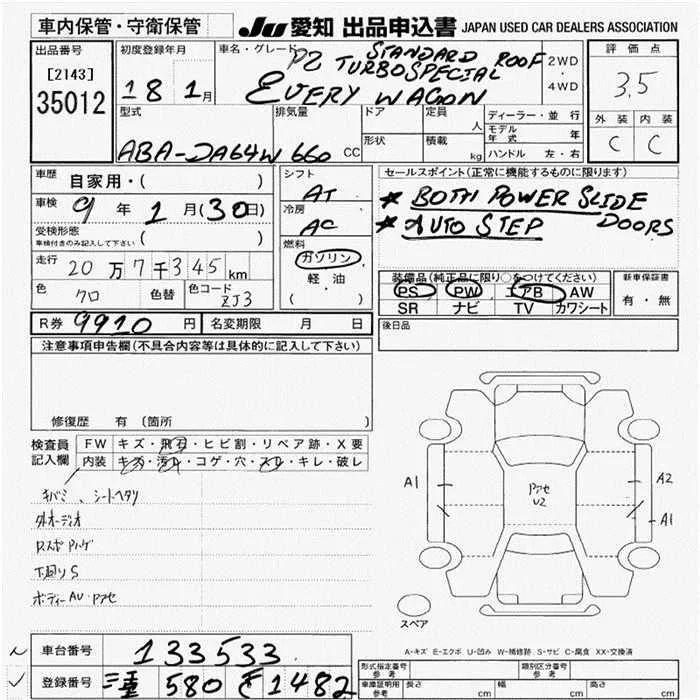 車内保管・守衛保管
JU 愛知 出品申込書 JAPAN USED CAR DEALERS ASSOCIATION
出品番号
[2143]
35012
初度登録年月
18 1月
車名・グレード
PZ STANDARD ROOF
TURBO SPECIAL
EVERY WAGON
2WD
・
4WD
評価点
3.5
外装 内装
C C
型式
ABA-DA64W
排気量
660 CC
ドア
形状
定員
人
積載
kg
ディーラー・並行
モデル年式 年
ハンドル 左・右
車歴 自家用・( )
車検 9年 1月(30日)
受検形態
車検付きのみ記入して下さい ( )
走行 20万7千345km
色 クロ 色替 色コード ZJ3
シフト
AT
冷房
AC
燃料
ガソリン
軽・油
( )
セールスポイント(正常に機能するものに限ります)
* BOTH POWER SLIDE
DOORS
* AUTO STEP
装備品(純正品に限り○をつけてください)
PS PW エアB AW
SR ナビ TV カワシート
新車保証書
有・無
R券 9910 円 名変期限 月 日
後日品
注意事項申告欄(不具合内容等は具体的に記入して下さい)
修復歴 有 (箇所 )
検査員
記入欄
FW キズ・飛石・ヒビ割・リペア跡・X要
内装 キズ・汚れ・コゲ・穴・スレ・キレ・破レ
キバミ、シートヘタリ
外オーディオ
下廻りS
A1
A2
A1
U2
スペア
A-キズ E-エクボ U-凹み W-補修跡 S-サビ C-腐食 XX-交換済
車台番号 133533
登録番号 三重 580 そ 1482
形式指定番号
参考
類別区分番号
参考
車庫証明用
参考
長さ cm 幅 cm 高さ cm